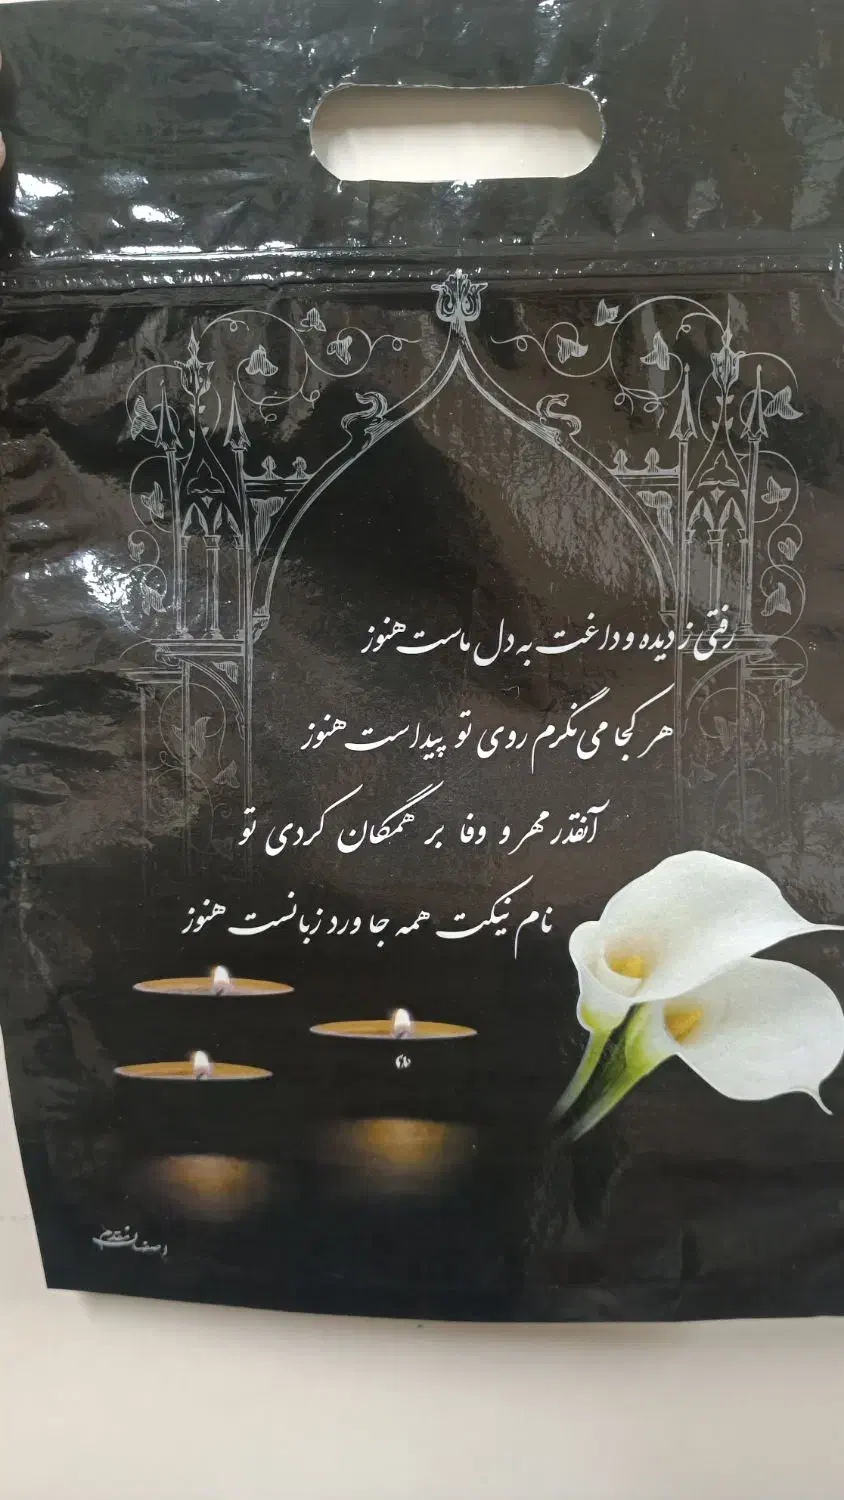 رفتی ز دیده و داغت به دل ماست هنوز
هر کجا می نگرم روی تو پیداست هنوز
آنقدر مهر و وفا بر همگان کردی تو
نام نیکت همه جا ورد زبانست هنوز